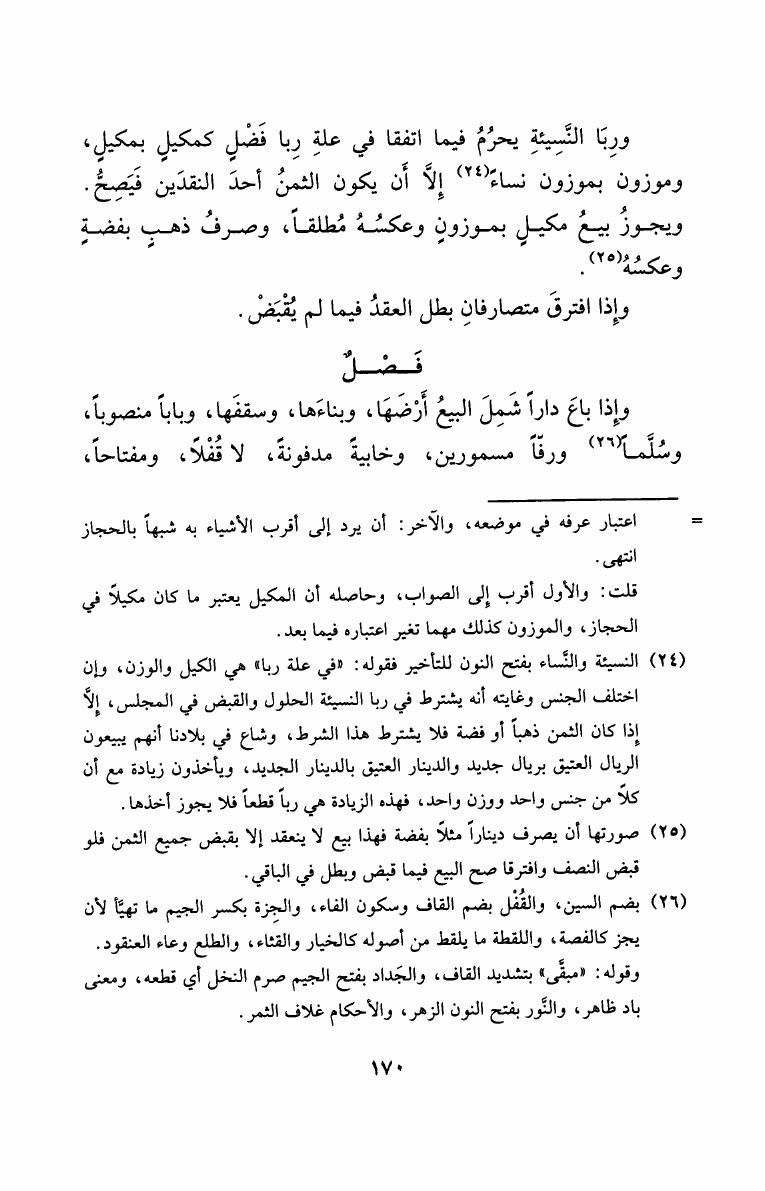 ورِبَا النَّسِيئةِ يحرُمُ فيما اتفقا في علةِ رِبا فَضْلٍ كمكيلٍ بمكيلٍ،
وموزون بموزون نساءً(٢٤) إلاَّ أَن يكون الثمنُ أحدَ النقدَين فَيَصِحُّ.
ويجوزُ بيعُ مكيلٍ بموزونٍ وعكسُهُ مُطلقاً، وصرفُ ذهبٍ بفضةٍ
وعكسُهُ(٢٥).
وإِذا افترقَ متصارفانِ بطل العقدُ فيما لم يُقْبَضْ.
فَصْلٌ
وإِذا باعَ داراً شَمِلَ البيعُ أَرْضَهَا، وبناءَها، وسقفَها، وباباً منصوباً،
وسُلَّماً(٢٦) ورفّاً مسمورين، وخابيةً مدفونةً، لا قُفْلاً، ومفتاحاً،
= اعتبار عرفه في موضعه، والآخر: أن يرد إلى أقرب الأشياء به شبهاً بالحجاز
انتهى.
قلت: والأول أقرب إلى الصواب، وحاصله أن المكيل يعتبر ما كان مكيلاً في
الحجاز، والموزون كذلك مهما تغير اعتباره فيما بعد.
(٢٤) النسيئة والنَّساء بفتح النون للتأخير فقوله: «في علة ربا» هي الكيل والوزن، وإن
اختلف الجنس وغايته أنه يشترط في ربا النسيئة الحلول والقبض في المجلس، إلاَّ
إذا كان الثمن ذهباً أو فضة فلا يشترط هذا الشرط، وشاع في بلادنا أنهم يبيعون
الريال العتيق بريال جديد والدينار العتيق بالدينار الجديد، ويأخذون زيادة مع أن
كلاً من جنس واحد ووزن واحد، فهذه الزيادة هي رباً قطعاً فلا يجوز أخذها.
(٢٥) صورتها أن يصرف ديناراً مثلاً بفضة فهذا بيع لا ينعقد إلا بقبض جميع الثمن فلو
قبض النصف وافترقا صح البيع فيما قبض وبطل في الباقي.
(٢٦) بضم السين، والقُفْل بضم القاف وسكون الفاء، والجِزة بكسر الجيم ما تهيَّأ لأن
يجز كالفصة، واللقطة ما يلقط من أصوله كالخيار والقثاء، والطلع وعاء العنقود.
وقوله: «مبقَّى» بتشديد القاف، والجَداد بفتح الجيم صرم النخل أي قطعه، ومعنى
باد ظاهر، والنَّور بفتح النون الزهر، والأحكام غلاف الثمر.
١٧٠